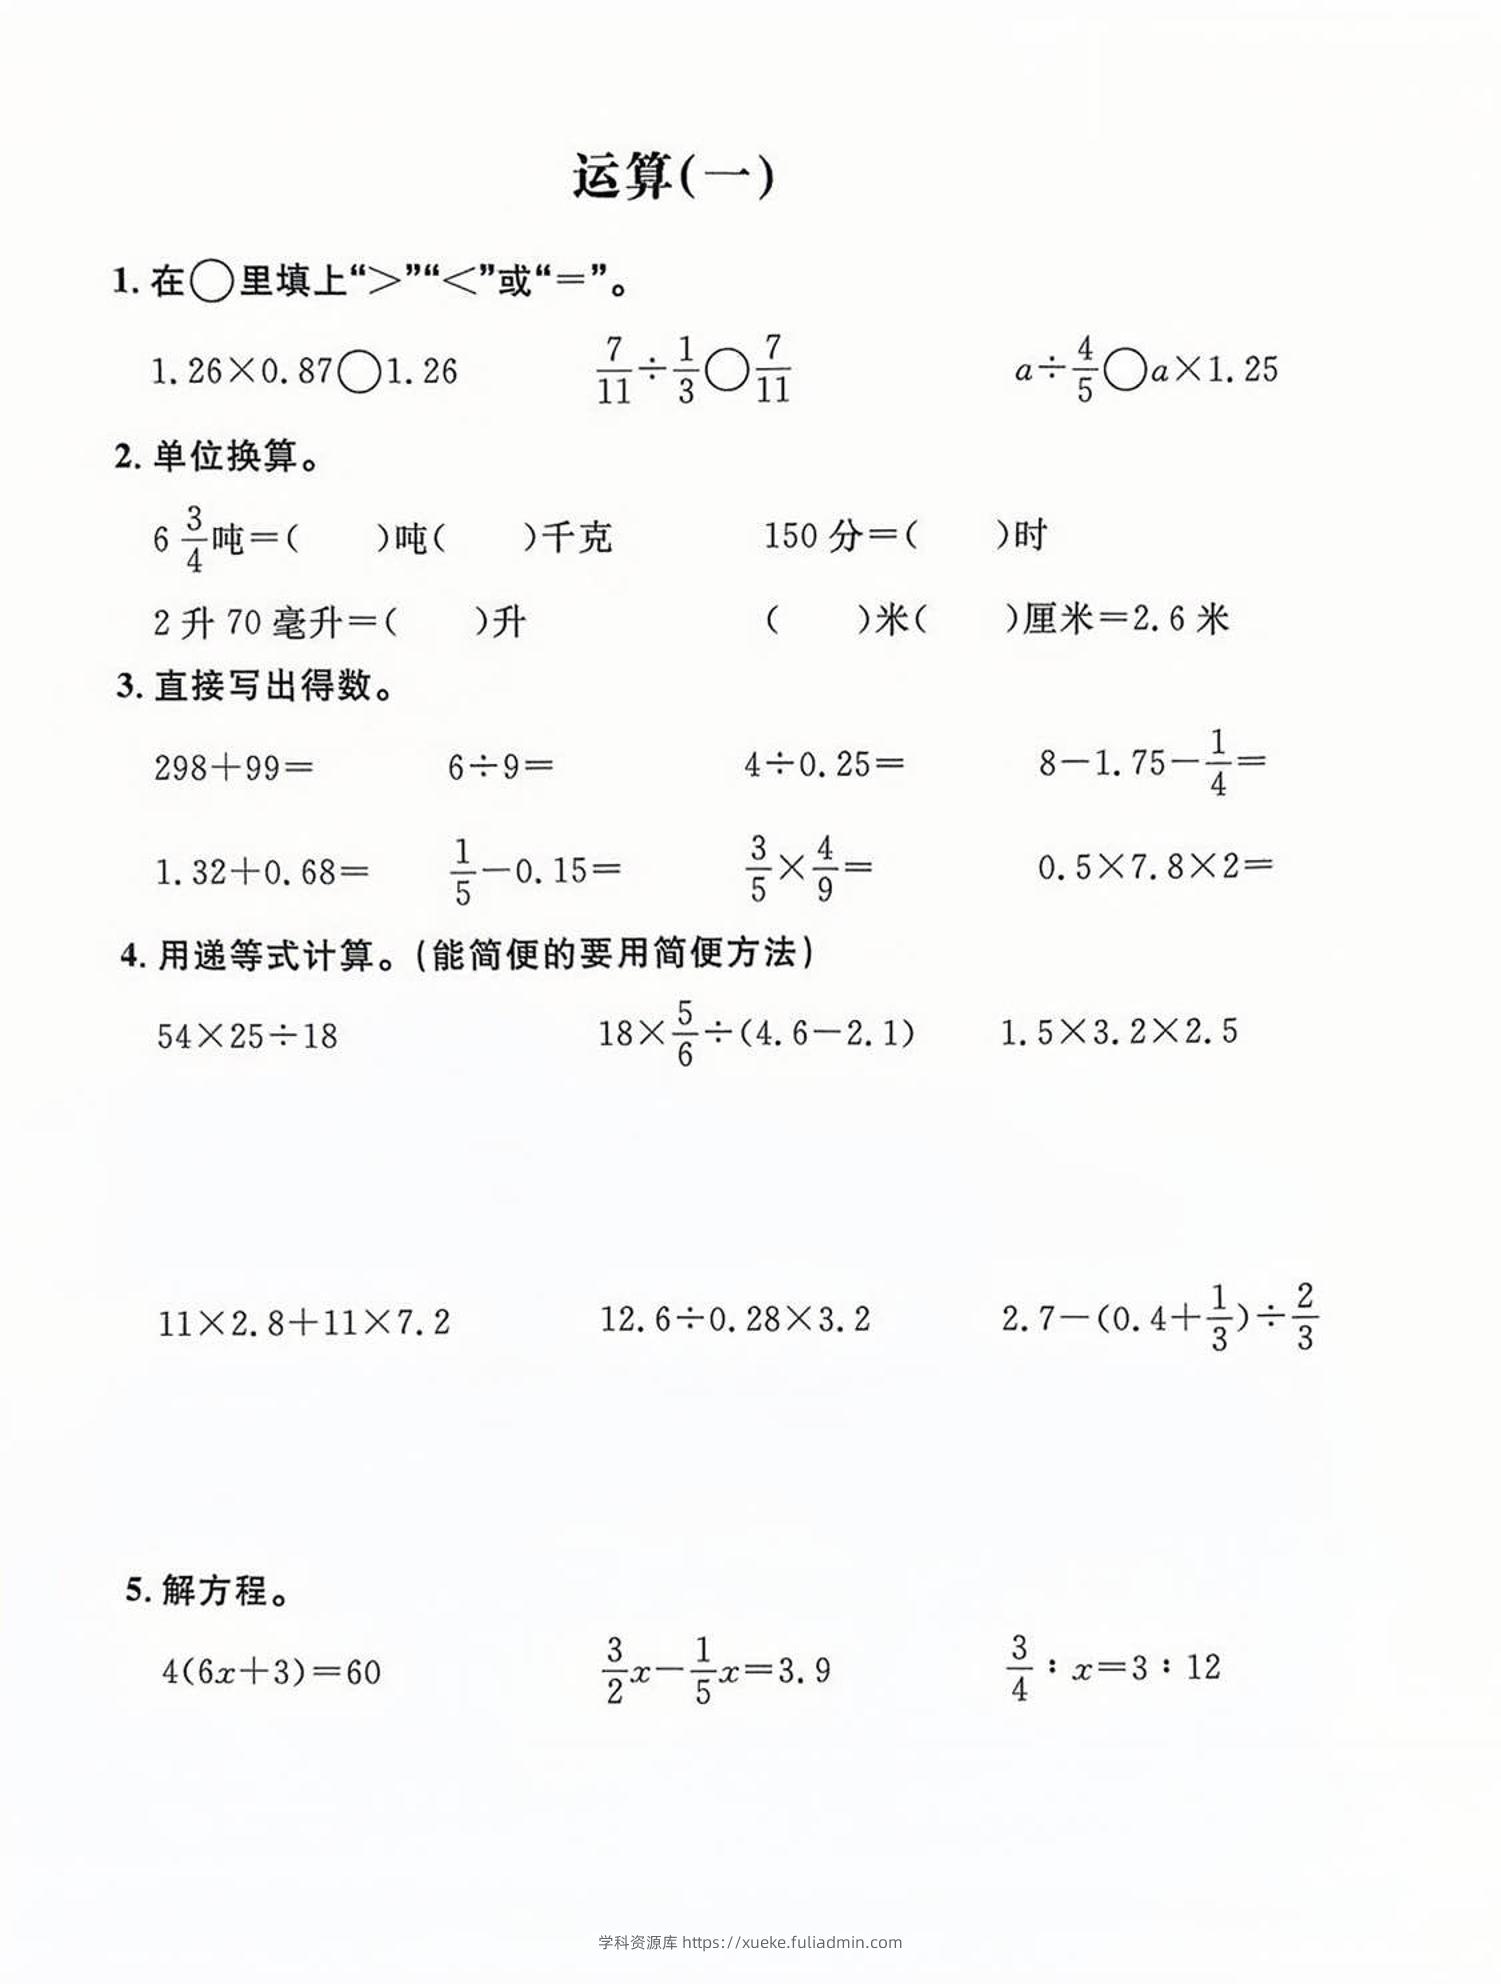 运算(一)
1. 在○里填上“>”“<”或“=”。
1.26×0.87○1.26 7/11÷1/3○7/11 a÷4/5○a×1.25
2. 单位换算。
6 3/4吨=( )吨( )千克 150 分=( )时
2 升 70 毫升=( )升 ( )米( )厘米=2.6 米
3. 直接写出得数。
298+99= 6÷9= 4÷0.25= 8-1.75-1/4=
1.32+0.68= 1/5-0.15= 3/5×4/9= 0.5×7.8×2=
4. 用递等式计算。(能简便的要用简便方法)
54×25÷18 18×5/6÷(4.6-2.1) 1.5×3.2×2.5
11×2.8+11×7.2 12.6÷0.28×3.2 2.7-(0.4+1/3)÷2/3
5. 解方程。
4(6x+3)=60 3/2x-1/5x=3.9 3/4∶x=3∶12
学科资源库 https://xueke.fuliadmin.com